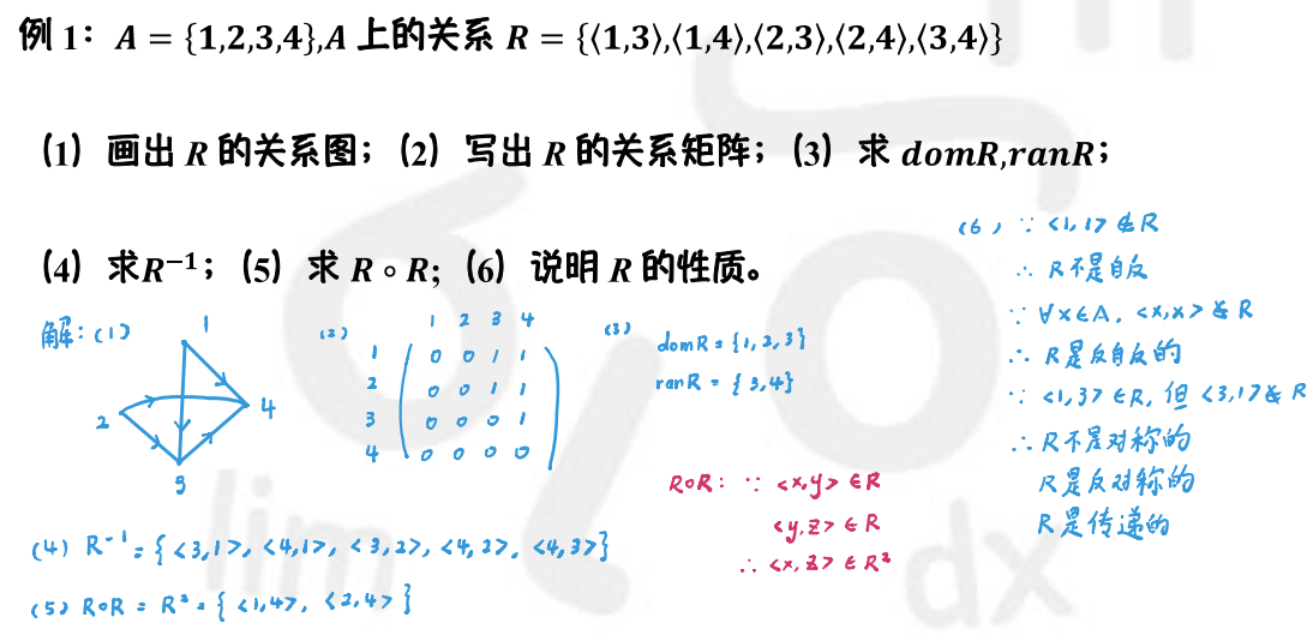 例 1：A = {1,2,3,4},A 上的关系 R = {⟨1,3⟩,⟨1,4⟩,⟨2,3⟩,⟨2,4⟩,⟨3,4⟩}
（1）画出 R 的关系图；（2）写出 R 的关系矩阵；（3）求 domR,ranR；
（4）求R⁻¹；（5）求 R∘R；（6）说明 R 的性质。
解：(1)
1
2
4
3
(2)
1 2 3 4
1 0 0 1 1
2 0 0 1 1
3 0 0 0 1
4 0 0 0 0
(3)
domR = {1,2,3}
ranR = {3,4}
(4) R⁻¹ = {<3,1>, <4,1>, <3,2>, <4,2>, <4,3>}
(5) R∘R = R² = {<1,4>, <2,4>}
R∘R： ∵ <x,y> ∈R
<y,z> ∈ R
∴ <x,z> ∈ R²
(6) ∵ <1,1> ∉R
∴ R不是自反
∵ ∀x∈A, <x,x> ∉ R
∴ R是反自反的
∵ <1,3> ∈R, 但 <3,1>∉ R
∴ R不是对称的
R是反对称的
R是传递的
lim
dx